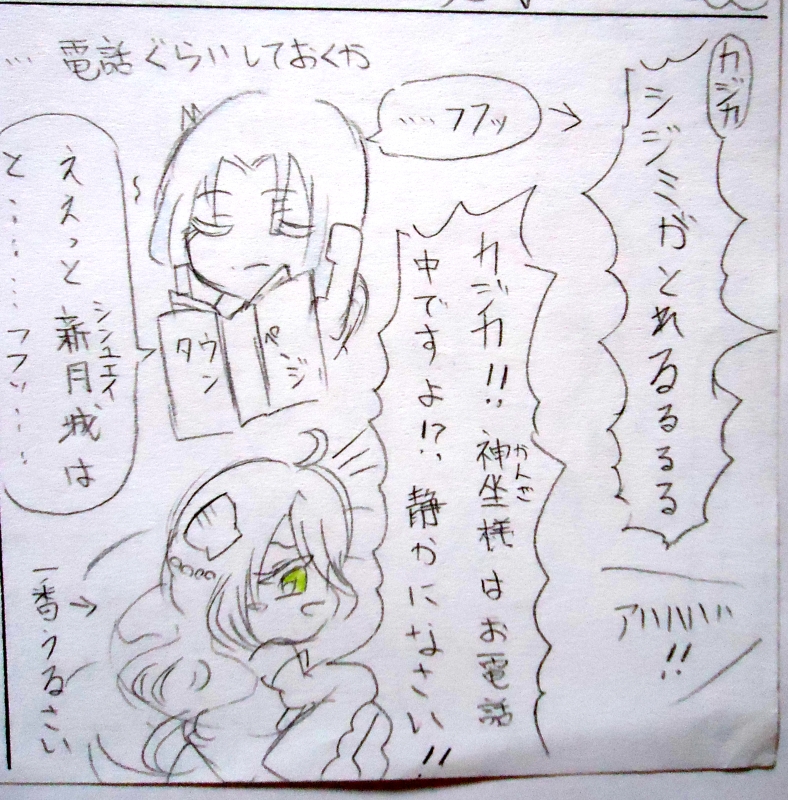 カジカ
シジミがとれるるるる
アハハハハ!!
…電話ぐらいしておくか
……フフッ
カジカ!!神坐様はお電話
かんざ
中ですよ!?静かになさい!!
ええっと新月城は
シンユエイ
と………フフッ……
タウン
ページ
一番うるさい